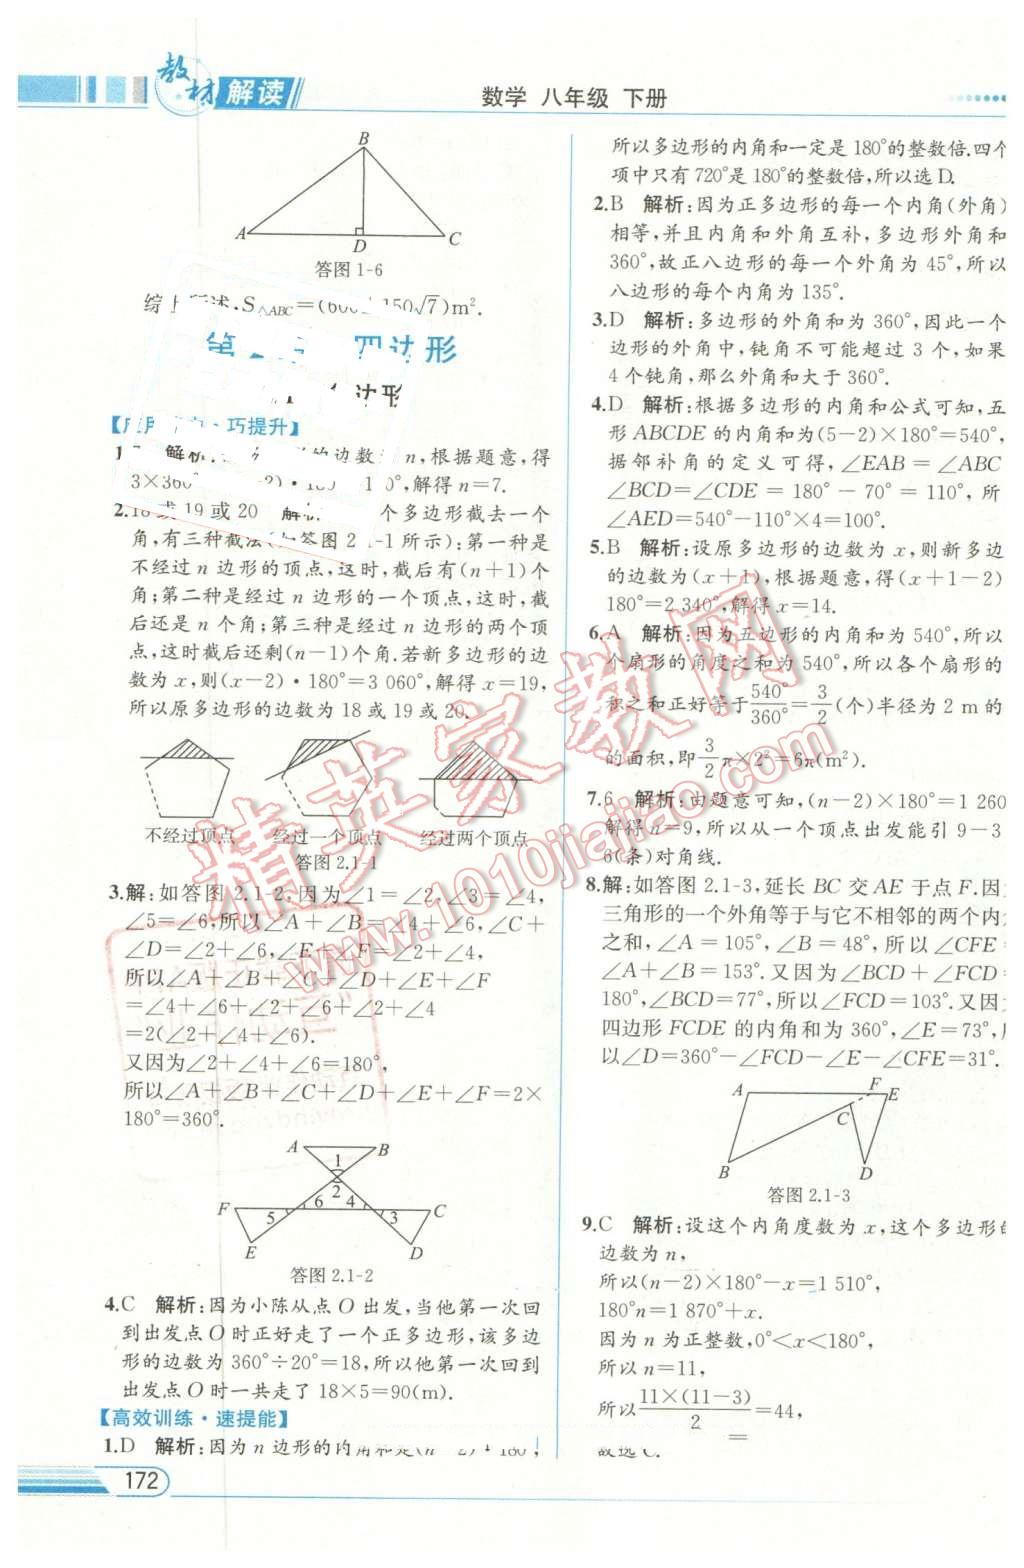 教材解读
数学 八年级 下册
B
A
D
C
答图 1-6
S△ABC=(600±150√7)m².
四边形
巧提升】
解析: 的边数 n,根据题意,得
3×360°
,解得 n=7.
2.18 或 19 或 20 解析 个多边形截去一个
角,有三种截法(如答图 2.1-1 所示):第一种是
不经过 n 边形的顶点,这时,截后有(n+1)个
角;第二种是经过 n 边形的一个顶点,这时,截
后还是 n 个角;第三种是经过 n 边形的两个顶
点,这时截后还剩(n-1)个角.若新多边形的边
数为 x,则(x-2)·180°=3 060°,解得 x=19,
所以原多边形的边数为 18 或 19 或 20.
不经过顶点 经过一个顶点 经过两个顶点
答图 2.1-1
3.解:如答图 2.1-2,因为∠1=∠2,∠3=∠4,
∠5=∠6,所以∠A+∠B=∠4+∠6,∠C+
∠D=∠2+∠6,∠E+∠F=∠2+∠4,
所以∠A+∠B+∠C+∠D+∠E+∠F
=∠4+∠6+∠2+∠6+∠2+∠4
=2(∠2+∠4+∠6).
又因为∠2+∠4+∠6=180°,
所以∠A+∠B+∠C+∠D+∠E+∠F=2×
180°=360°.
A B
1
2
F 5 6 4 3 C
E D
答图 2.1-2
4.C 解析:因为小陈从点 O 出发,当他第一次回
到出发点 O 时正好走了一个正多边形,该多边
形的边数为 360°÷20°=18,所以他第一次回到
出发点 O 时一共走了 18×5=90(m).
【高效训练·速提能】
1.D 解析:因为 n 边形的内角和是(n-2)·180°,
172
所以多边形的内角和一定是 180°的整数倍.四个
项中只有 720°是 180°的整数倍,所以选 D.
2.B 解析:因为正多边形的每一个内角(外角)
相等,并且内角和外角互补,多边形外角和
360°,故正八边形的每一个外角为 45°,所以
八边形的每个内角为 135°.
3.D 解析:多边形的外角和为 360°,因此一个
边形的外角中,钝角不可能超过 3 个,如果
4 个钝角,那么外角和大于 360°.
4.D 解析:根据多边形的内角和公式可知,五
形 ABCDE 的内角和为(5-2)×180°=540°,
据邻补角的定义可得,∠EAB=∠ABC
∠BCD=∠CDE=180°-70°=110°,所
∠AED=540°-110°×4=100°.
5.B 解析:设原多边形的边数为 x,则新多边
的边数为(x+1),根据题意,得(x+1-2)
180°=2 340°,解得 x=14.
6.A 解析:因为五边形的内角和为 540°,所以
个扇形的角度之和为 540°,所以各个扇形的
积之和正好等于540°/360°=3/2(个)半径为 2 m 的
的面积,即3/2π×2²=6π(m²).
7.6 解析:由题意可知,(n-2)×180°=1 260
解得 n=9,所以从一个顶点出发能引 9-3
6(条)对角线.
8.解:如答图 2.1-3,延长 BC 交 AE 于点 F.因
三角形的一个外角等于与它不相邻的两个内
之和,∠A=105°,∠B=48°,所以∠CFE=
∠A+∠B=153°.又因为∠BCD+∠FCD=
180°,∠BCD=77°,所以∠FCD=103°.又因
四边形 FCDE 的内角和为 360°,∠E=73°,
以∠D=360°-∠FCD-∠E-∠CFE=31°.
A F E
C
B D
答图 2.1-3
9.C 解析:设这个内角度数为 x,这个多边形的
边数为 n,
所以(n-2)×180°-x=1 510°,
180°n=1 870°+x.
因为 n 为正整数,0°<x<180°,
所以 n=11,
所以11×(11-3)/2=44,
故选 C.
精英家教网
www.1010jiajiao.com